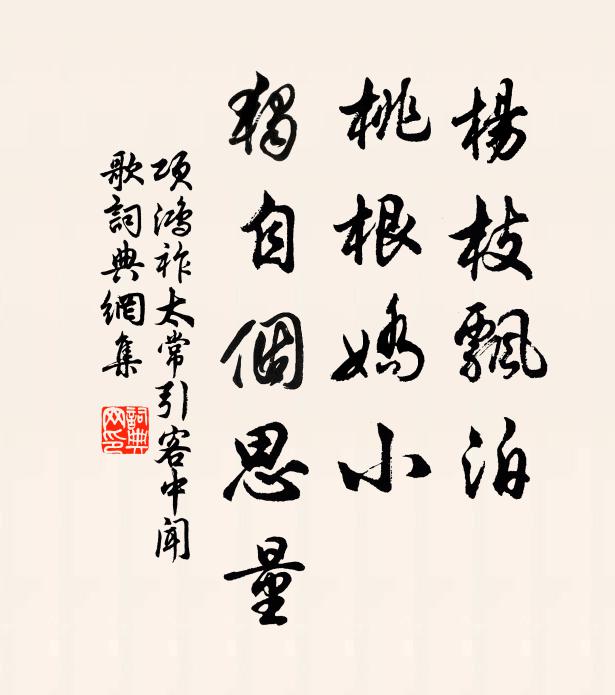 楊枝飄泊
桃根嬌小
獨自個思量
項鴻祚太常引客中聞
歌詞典網集
詞典
网印